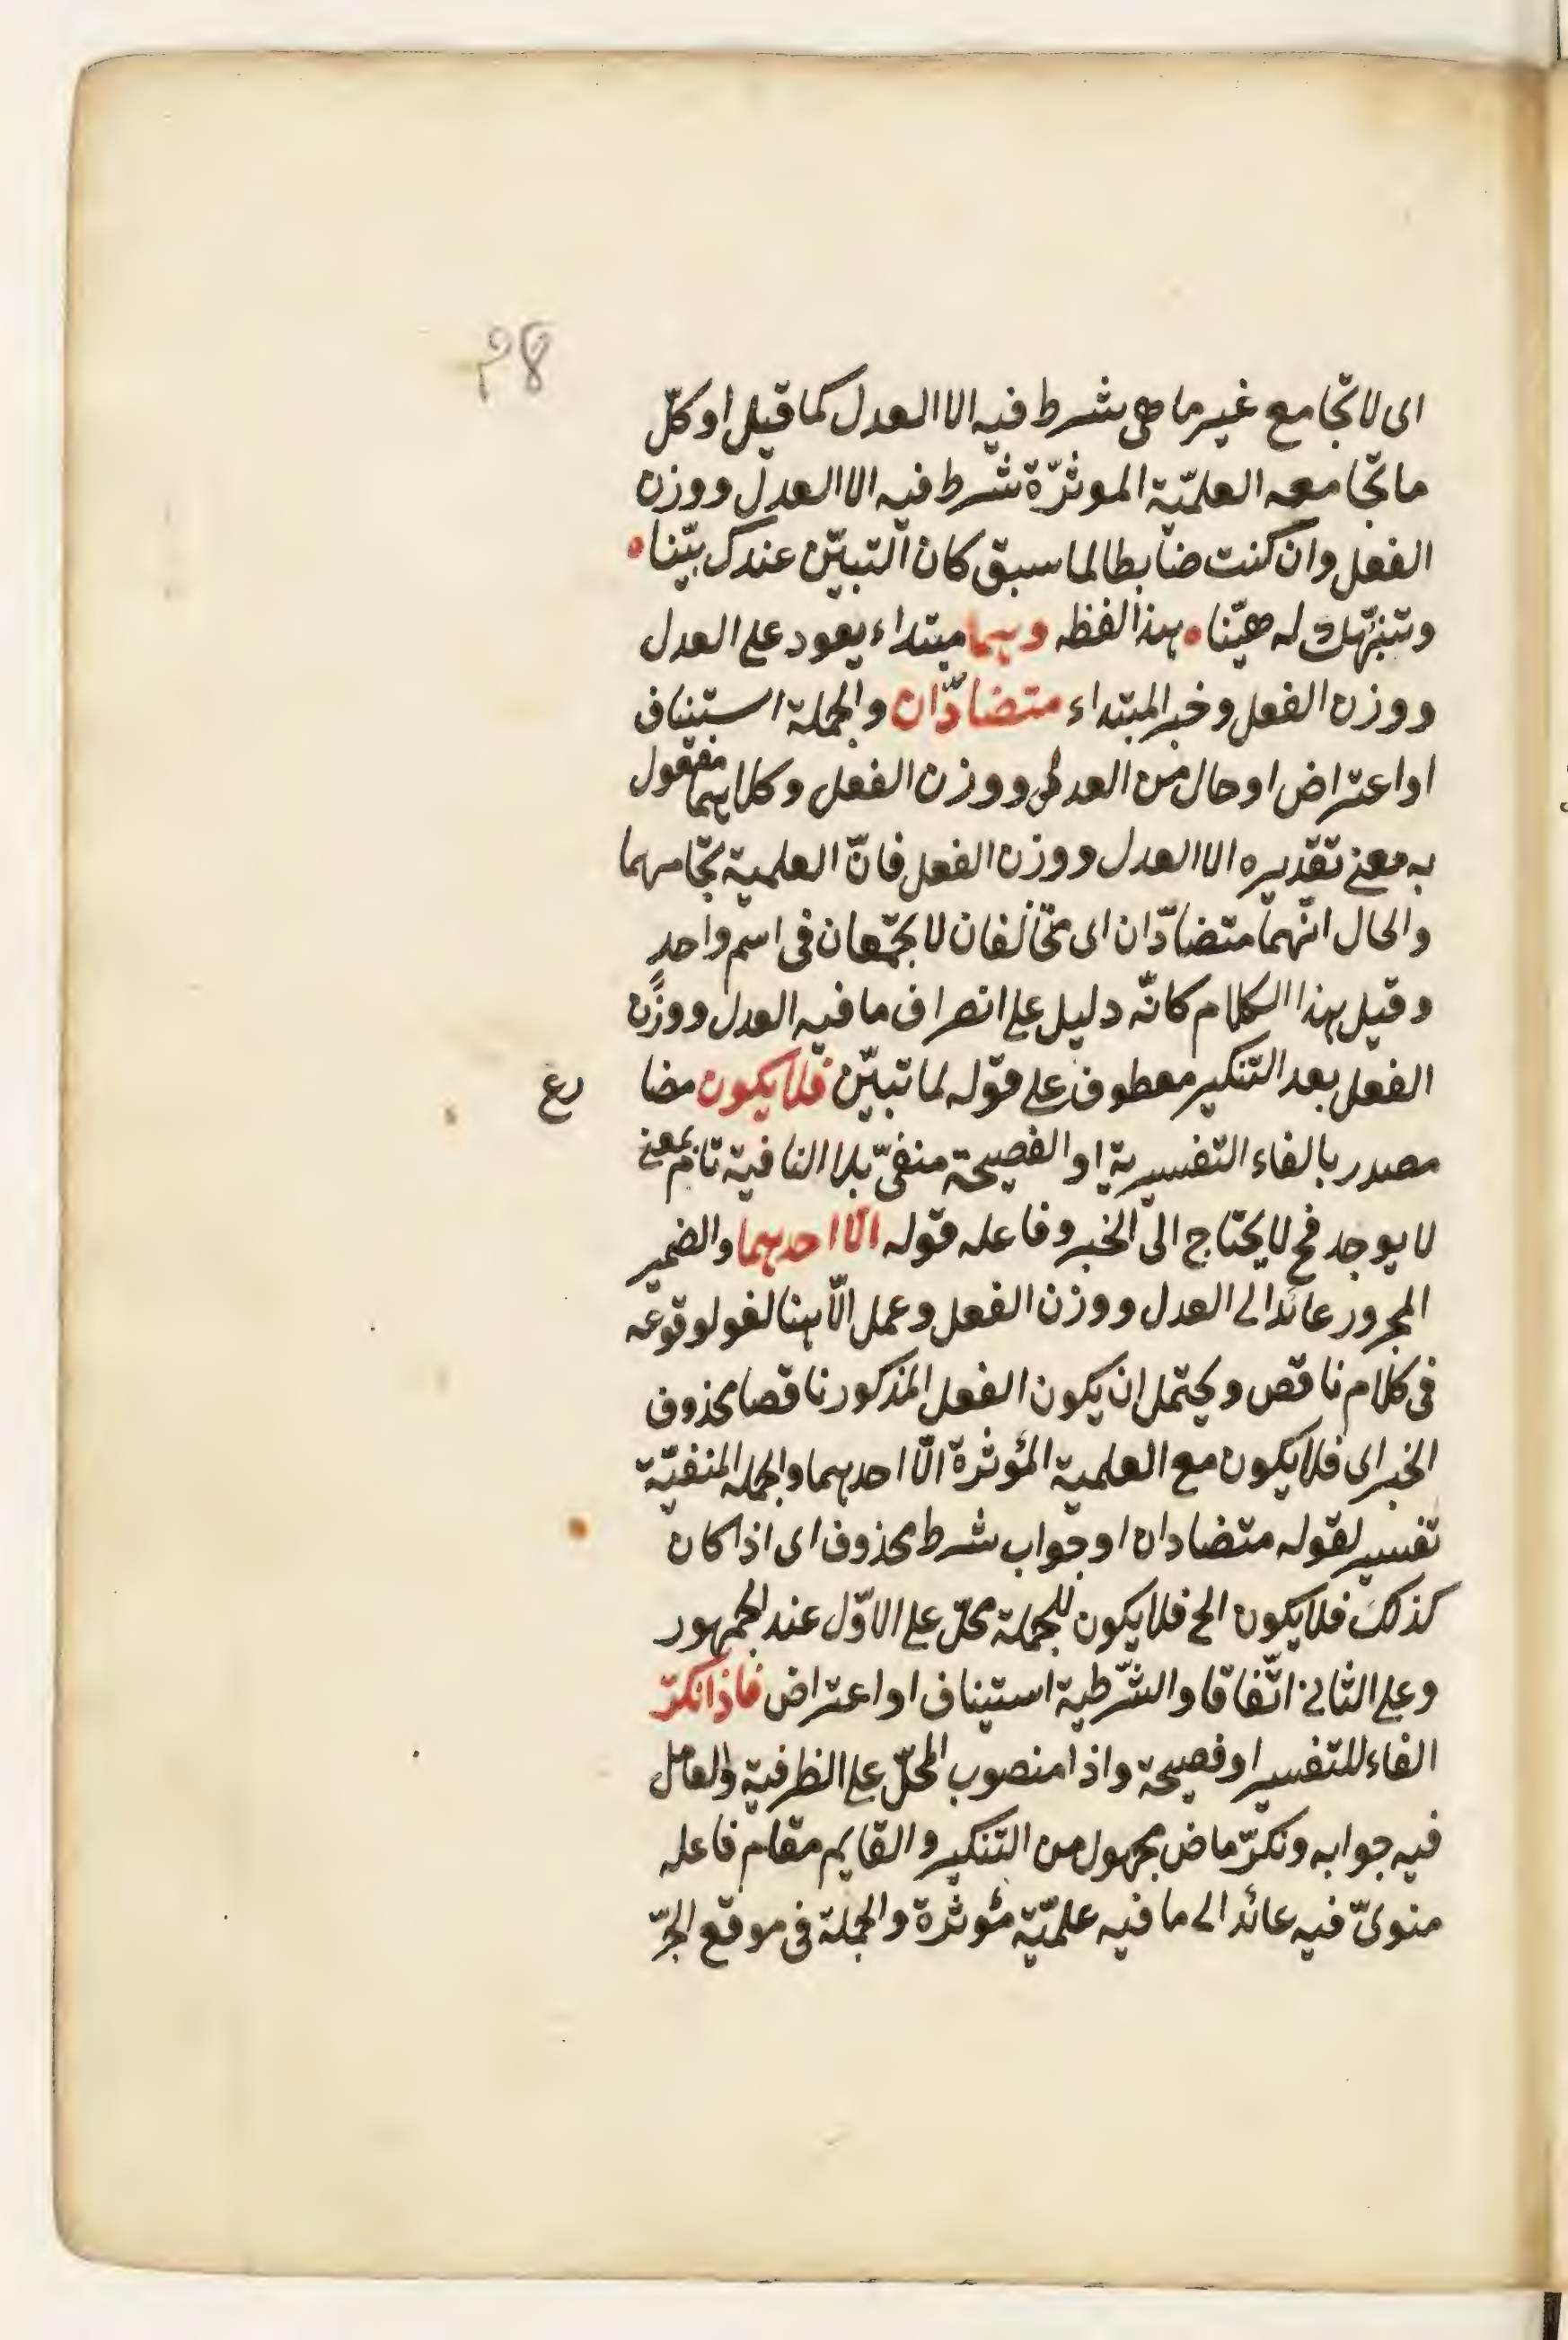 اى لا تجامع غير ما هى شرط فيه الا العدل كما قيل او كلّ
ما تجامعه العلميّة الموثرّة شرط فيه الا العدل ووزن
الفعل وان كنت ضابطا لما سبق كان التبيّن عندك بيّنا
وتنبّهك له هيّنا هذا لفظه وهما مبتداء يعود على العدل
ووزن الفعل وخبر المبتداء متضادّان والجملة استيناف
او اعتراض او حال من العدل ووزن الفعل وكلاهما مفعول
به معنى تقديره الا العدل ووزن الفعل فانّ العلمية تجامعهما
والحال انّهما متضادّان اى متخالفان لا يجتمعان فى اسم واحد
وقيل هذا الكلام كانّه دليل على انصراف ما فيه العدل ووزن
الفعل بعد التنكير معطوف على قوله لما تبيّن فلا يكون مضا
رع
مصدر بالفاء التفسيرية او الفصيحة منفىّ بلا النافية تام بمعنى
لا يوجد فح لا يحتاج الى الخبر وفاعله قوله الّا احدهما والضمير
المجرور عائد الى العدل ووزن الفعل وعمل الّا هنا لغو لوقوعه
فى كلام ناقص ويحتمل ان يكون الفعل المذكور ناقصا محذوف
الخبر اى فلا يكون مع العلمية المؤثرة الّا احدهما والجملة المنفيّة
تفسير لقوله متضادان او جواب شرط محذوف اى اذا كان
كذلك فلا يكون الخ فلا يكون للجملة محلّ على الاوّل عند الجمهور
وعلى الثانى اتّفاقا والشّرطية استيناف او اعتراض فاذا نكرّ
الفاء للتفسير او فصيحة واذا منصوب المحلّ على الظرفية والعامل
فيه جوابه ونكرّ ماض مجهول من التنكير والقايم مقام فاعله
منوىّ فيه عائد الى ما فيه علميّة مؤثرة والجملة فى موقع الجرّ